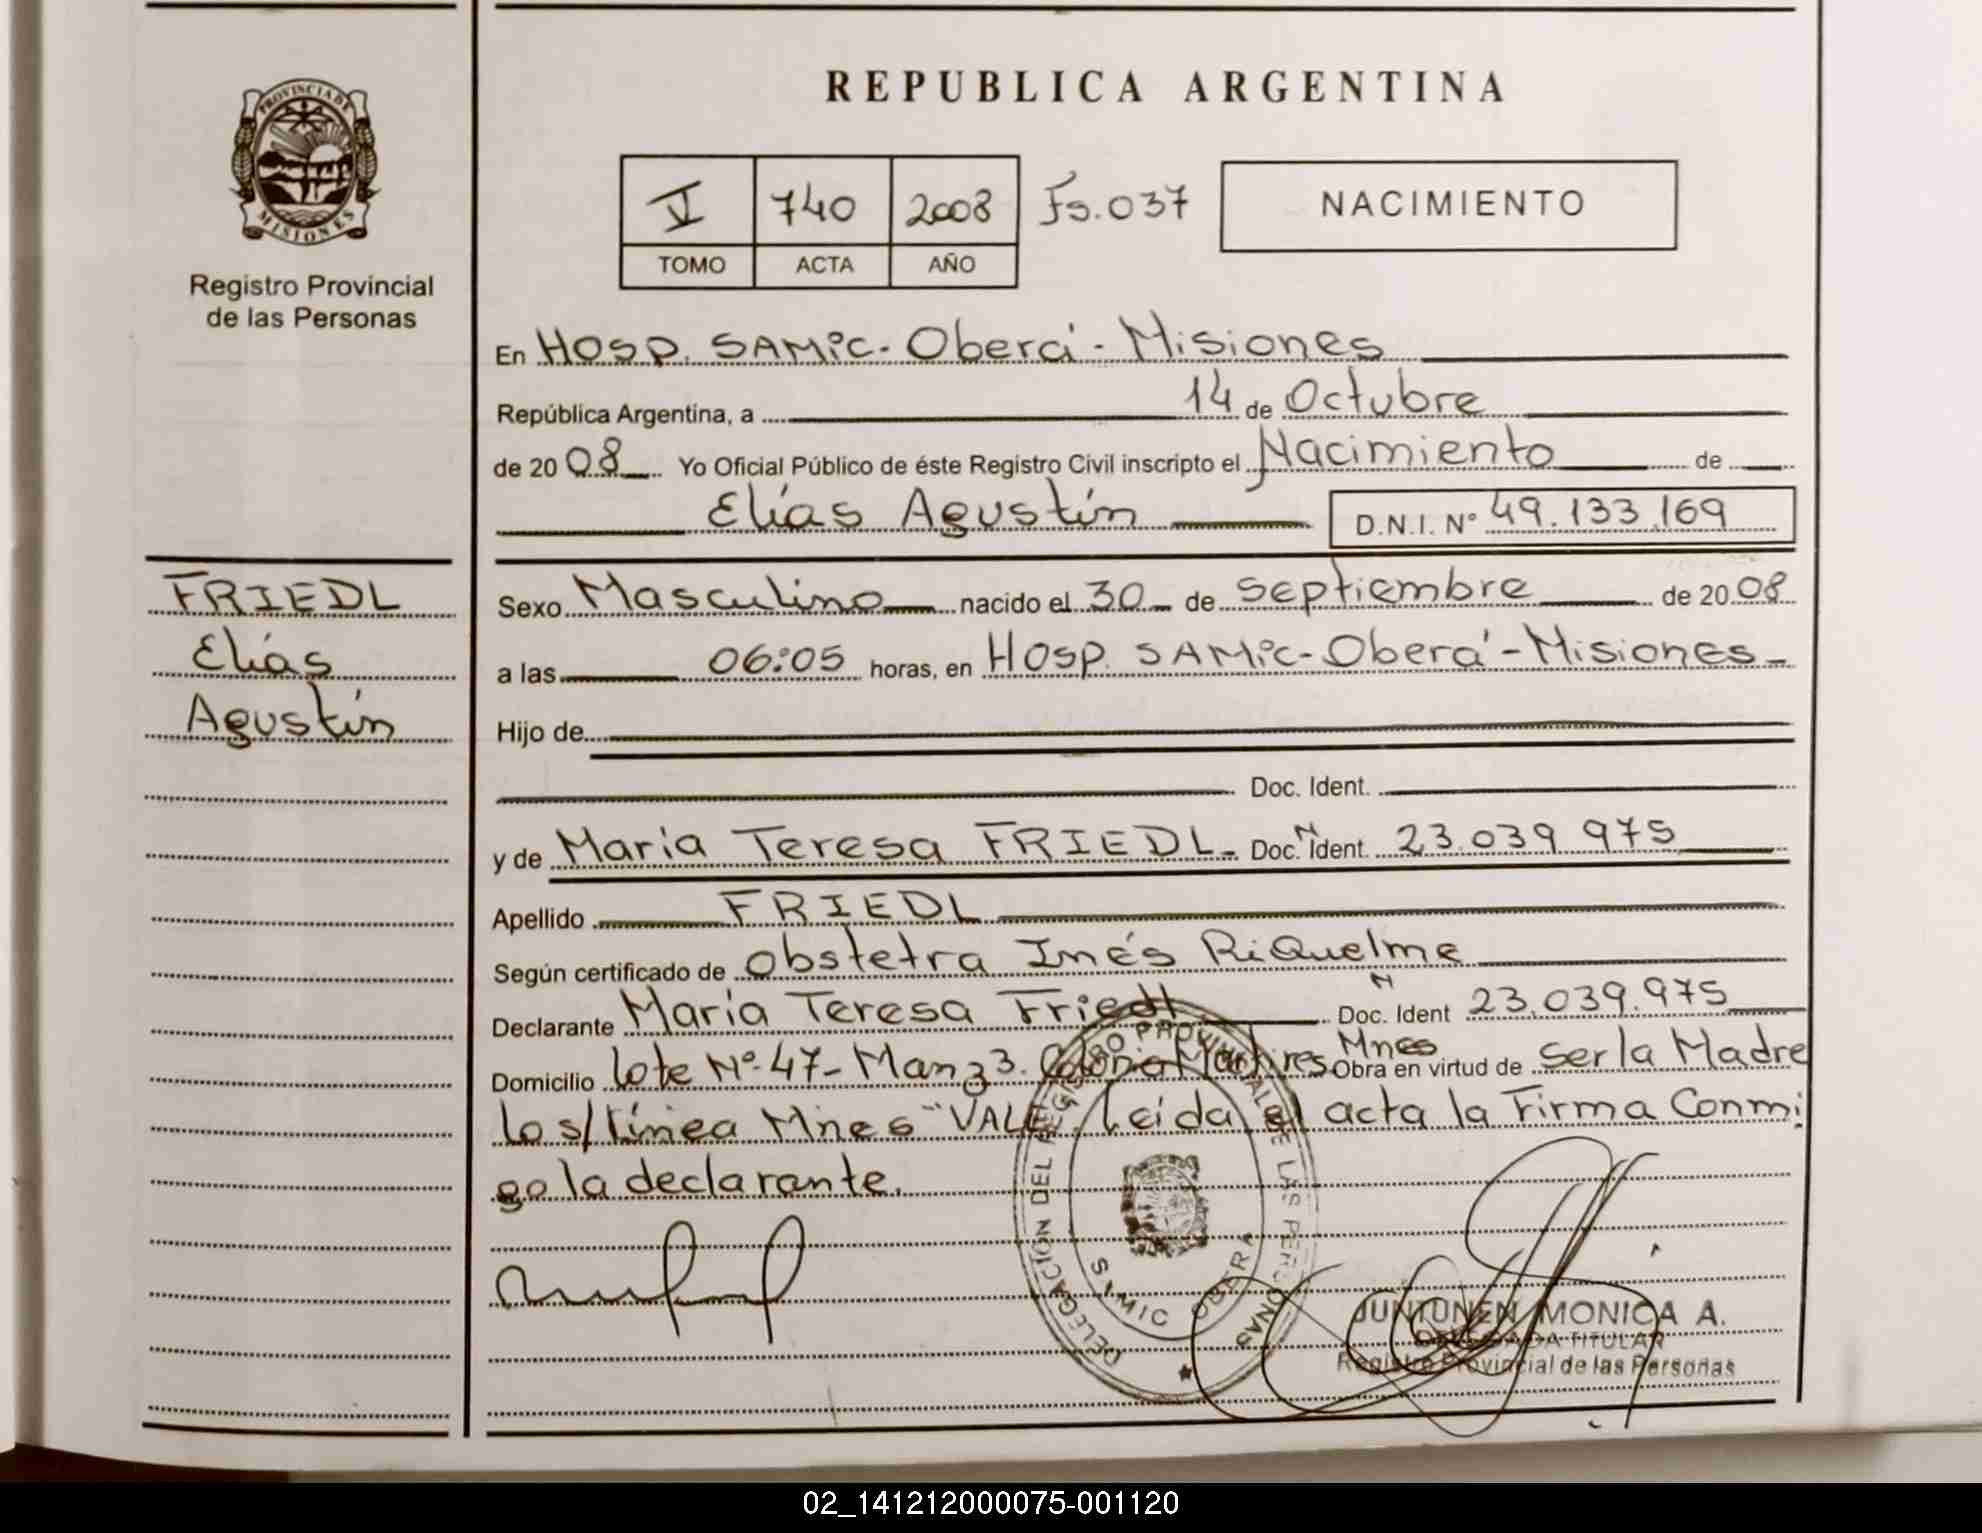 PROVINCIA DE
MISIONES
Registro Provincial
de las Personas
REPUBLICA ARGENTINA
V 740 2008 Fs. 037
TOMO ACTA AÑO
NACIMIENTO
En Hosp. SAMic - Oberá - Misiones
República Argentina, a 14 de Octubre
de 20 08 Yo Oficial Público de éste Registro Civil inscripto el Nacimiento de
Elías Agustín D.N.I. Nº 49.133.169
FRIEDL
Elías
Agustín
Sexo Masculino nacido el 30 de septiembre de 20 08
a las 06:05 horas, en Hosp. SAMic - Oberá - Misiones
Hijo de
Doc. Ident.
y de María Teresa FRIEDL Doc. N Ident. 23.039.975
Apellido FRIEDL
Según certificado de obstetra Inés Riquelme
Declarante María Teresa Friedl Doc. N Ident 23.039.975
Domicilio lote Nº 47 - Manz 3. Colonia Martires Mnes Obra en virtud de ser la Madre
lo s/línea Mnes "VALE. Leida el acta la Firma Conmi
go la declarante.
DELEGACIÓN DEL REGISTRO PROVINCIAL DE LAS PERSONAS
SAMIC OBERA
JUNTUNEN MONICA A.
DELEGADA TITULAR
Registro Provincial de las Personas
02_141212000075-001120